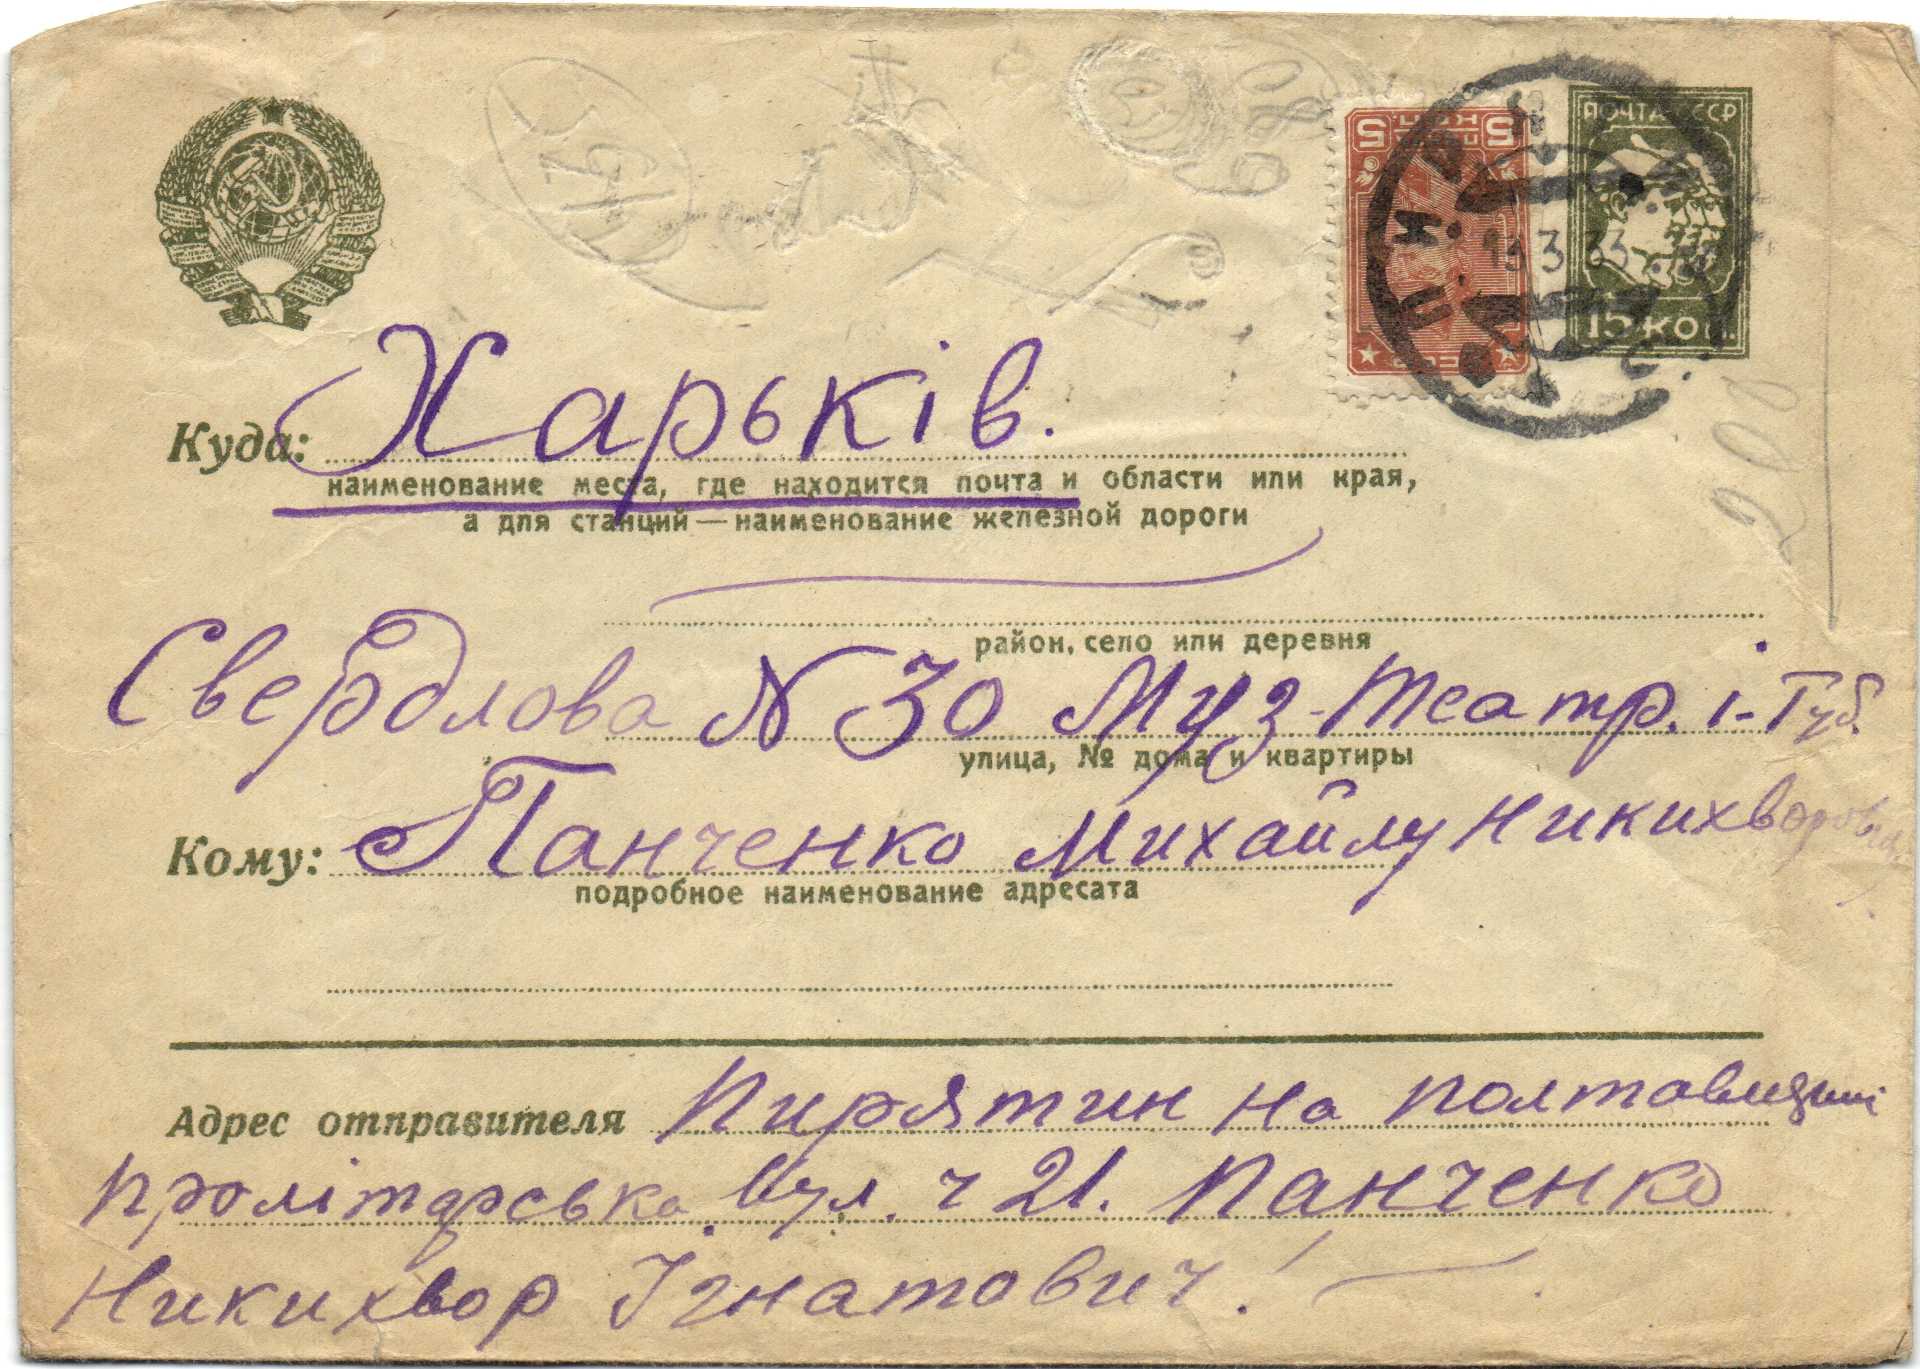 ПОЧТА СССР
5 КОП. 5
13 3 33
15 КОП.
Куда: Харьків.
наименование места, где находится почта и области или края,
а для станций — наименование железной дороги
район, село или деревня
Свердлова N 30 Муз-Театр. і-Губ.
улица, № дома и квартиры
Кому: Панченко Михайлу Никихворовичу
подробное наименование адресата
Адрес отправителя Пирятин на Полтавщині
Пролітарська вул. ч 21. Панченко
Никихвор Ігнатович!